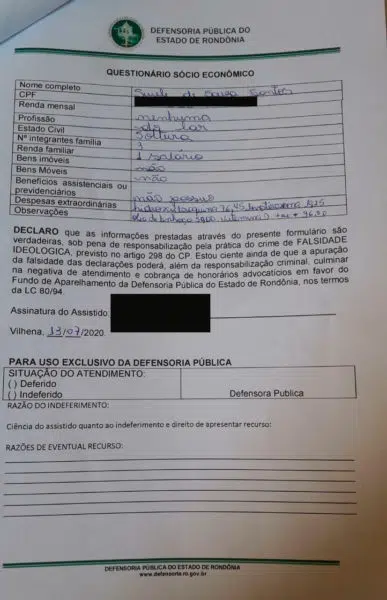 DEFENSORIA PÚBLICA DO
ESTADO DE RONDÔNIA
QUESTIONÁRIO SÓCIO ECONÔMICO
Nome completo de Souza Santos
CPF
Renda mensal nenhuma
Profissão do lar
Estado Civil Solteira
Nº integrantes família 3
Renda familiar 1 salário
Bens imóveis não
Bens Móveis não
Benefícios assistenciais ou
previdenciários não possuo
Despesas extraordinárias
Observações
DECLARO que as informações prestadas através do presente formulário são
verdadeiras, sob pena de responsabilização pela prática do crime de FALSIDADE
IDEOLOGICA, previsto no artigo 298 do CP. Estou ciente ainda de que a apuração
da falsidade das declarações poderá, além da responsabilização criminal, culminar
na negativa de atendimento e cobrança de honorários advocatícios em favor do
Fundo de Aparelhamento da Defensoria Pública do Estado de Rondônia, nos termos
da LC 80/94.
Assinatura do Assistido:
Vilhena, 13/07/2020.
PARA USO EXCLUSIVO DA DEFENSORIA PÚBLICA
SITUAÇÃO DO ATENDIMENTO:
( ) Deferido
( ) Indeferido Defensora Publica
RAZÃO DO INDEFERIMENTO:
Ciência do assistido quanto ao indeferimento e direito de apresentar recurso:
RAZÕES DE EVENTUAL RECURSO:
DEFENSORIA PÚBLICA DO ESTADO DE RONDÔNIA
www.defensoria.ro.gov.br